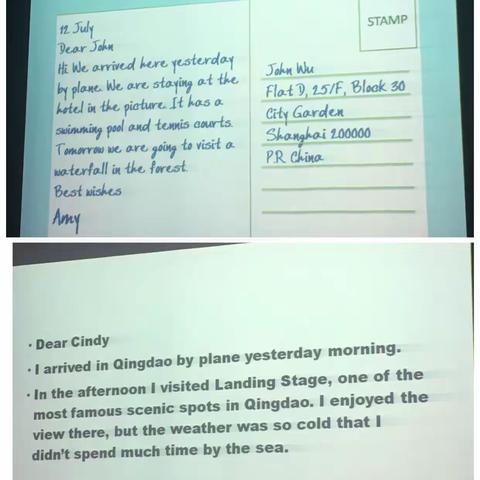 12 July
Dear John
Hi We arrived here yesterday
by plane. We are staying at the
hotel in the picture. It has a
swimming pool and tennis courts.
Tomorrow we are going to visit a
waterfall in the forest.
Best wishes
Amy
STAMP
John Wu
Flat D, 25/F, Block 30
City Garden
Shanghai 200000
P.R. China
• Dear Cindy
• I arrived in Qingdao by plane yesterday morning.
• In the afternoon I visited Landing Stage, one of the
most famous scenic spots in Qingdao. I enjoyed the
view there, but the weather was so cold that I
didn't spend much time by the sea.